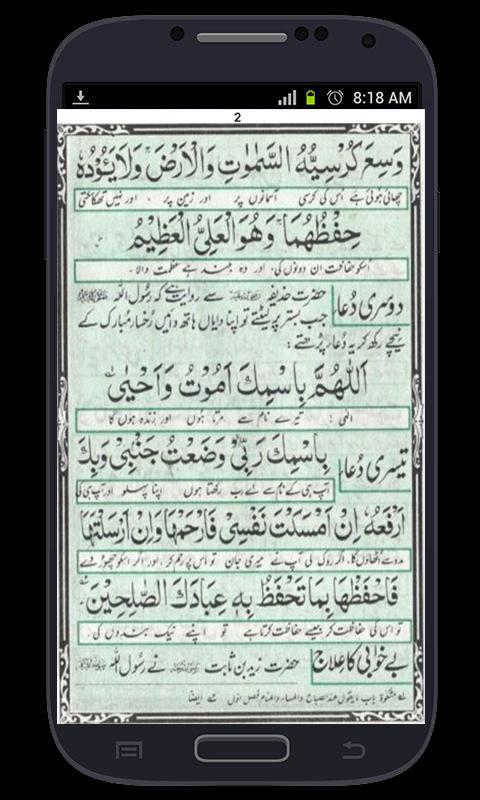 8:18 AM
2
وَسِعَ كُرْسِيُّهُ السَّمٰوٰتِ وَالْاَرْضَ ۚ وَلَا يَـُٔوْدُهٗ
چھائی ہوئی ہے اُس کی کرسی آسمانوں پر اور زمین پر ، اور نہیں تھکا سکتی
حِفْظُهُمَا ۚ وَهُوَ الْعَلِيُّ الْعَظِيْمُ
اسکو حفاظت ان دونوں کی، اور وہ بلند ہے عظمت والا۔
دوسری دُعا حضرت حذیفہ سے روایت ہے کہ رسُول اللہ ﷺ
جب بستر پر لیٹتے تو اپنا دایاں ہاتھ دائیں رُخسار مُبارک کے
نیچے رکھ کر یہ دُعا پڑھتے:
اَللّٰهُمَّ بِاسْمِكَ اَمُوْتُ وَاَحْيٰى
الٰہی ! تیرے نام سے مرتا ہوں اور زندہ ہوں گا
تیسری دُعا بِاسْمِكَ رَبِّيْ وَضَعْتُ جَنْبِيْ وَبِكَ
آپ ہی کے نام سے اے رب رکھتا ہوں اپنا پہلو اور آپ ہی کی
اَرْفَعُهٗ اِنْ اَمْسَكْتَ نَفْسِيْ فَارْحَمْهَا وَاِنْ اَرْسَلْتَهَا
مدد سے اُٹھاؤں گا، اگر روک لی آپ نے میری جان تو اس پر رحم کر، اور اگر اسکو چھوڑ دے
فَاحْفَظْهَا بِمَا تَحْفَظُ بِهٖ عِبَادَكَ الصّٰلِحِيْنَ ۔
تو اس کی حفاظت کر جیسے حفاظت کرتا ہے تو اپنے نیک بندوں کی ۔
بے خوابی کا علاج حضرت زید بن ثابت نے رسُول اللہ ﷺ
مشکوٰۃ باب مایقول عند الصباح والمساء والمنام فصل اول ایضا